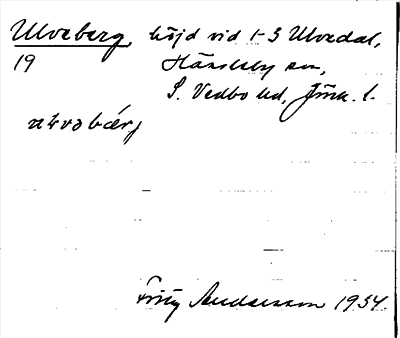 Ulveberg, höjd vid 1-3 Ulvedal,
19 Hässleby sn,
S. Vedbo hd, Jönk. l.
Fritz Andersson 1934.